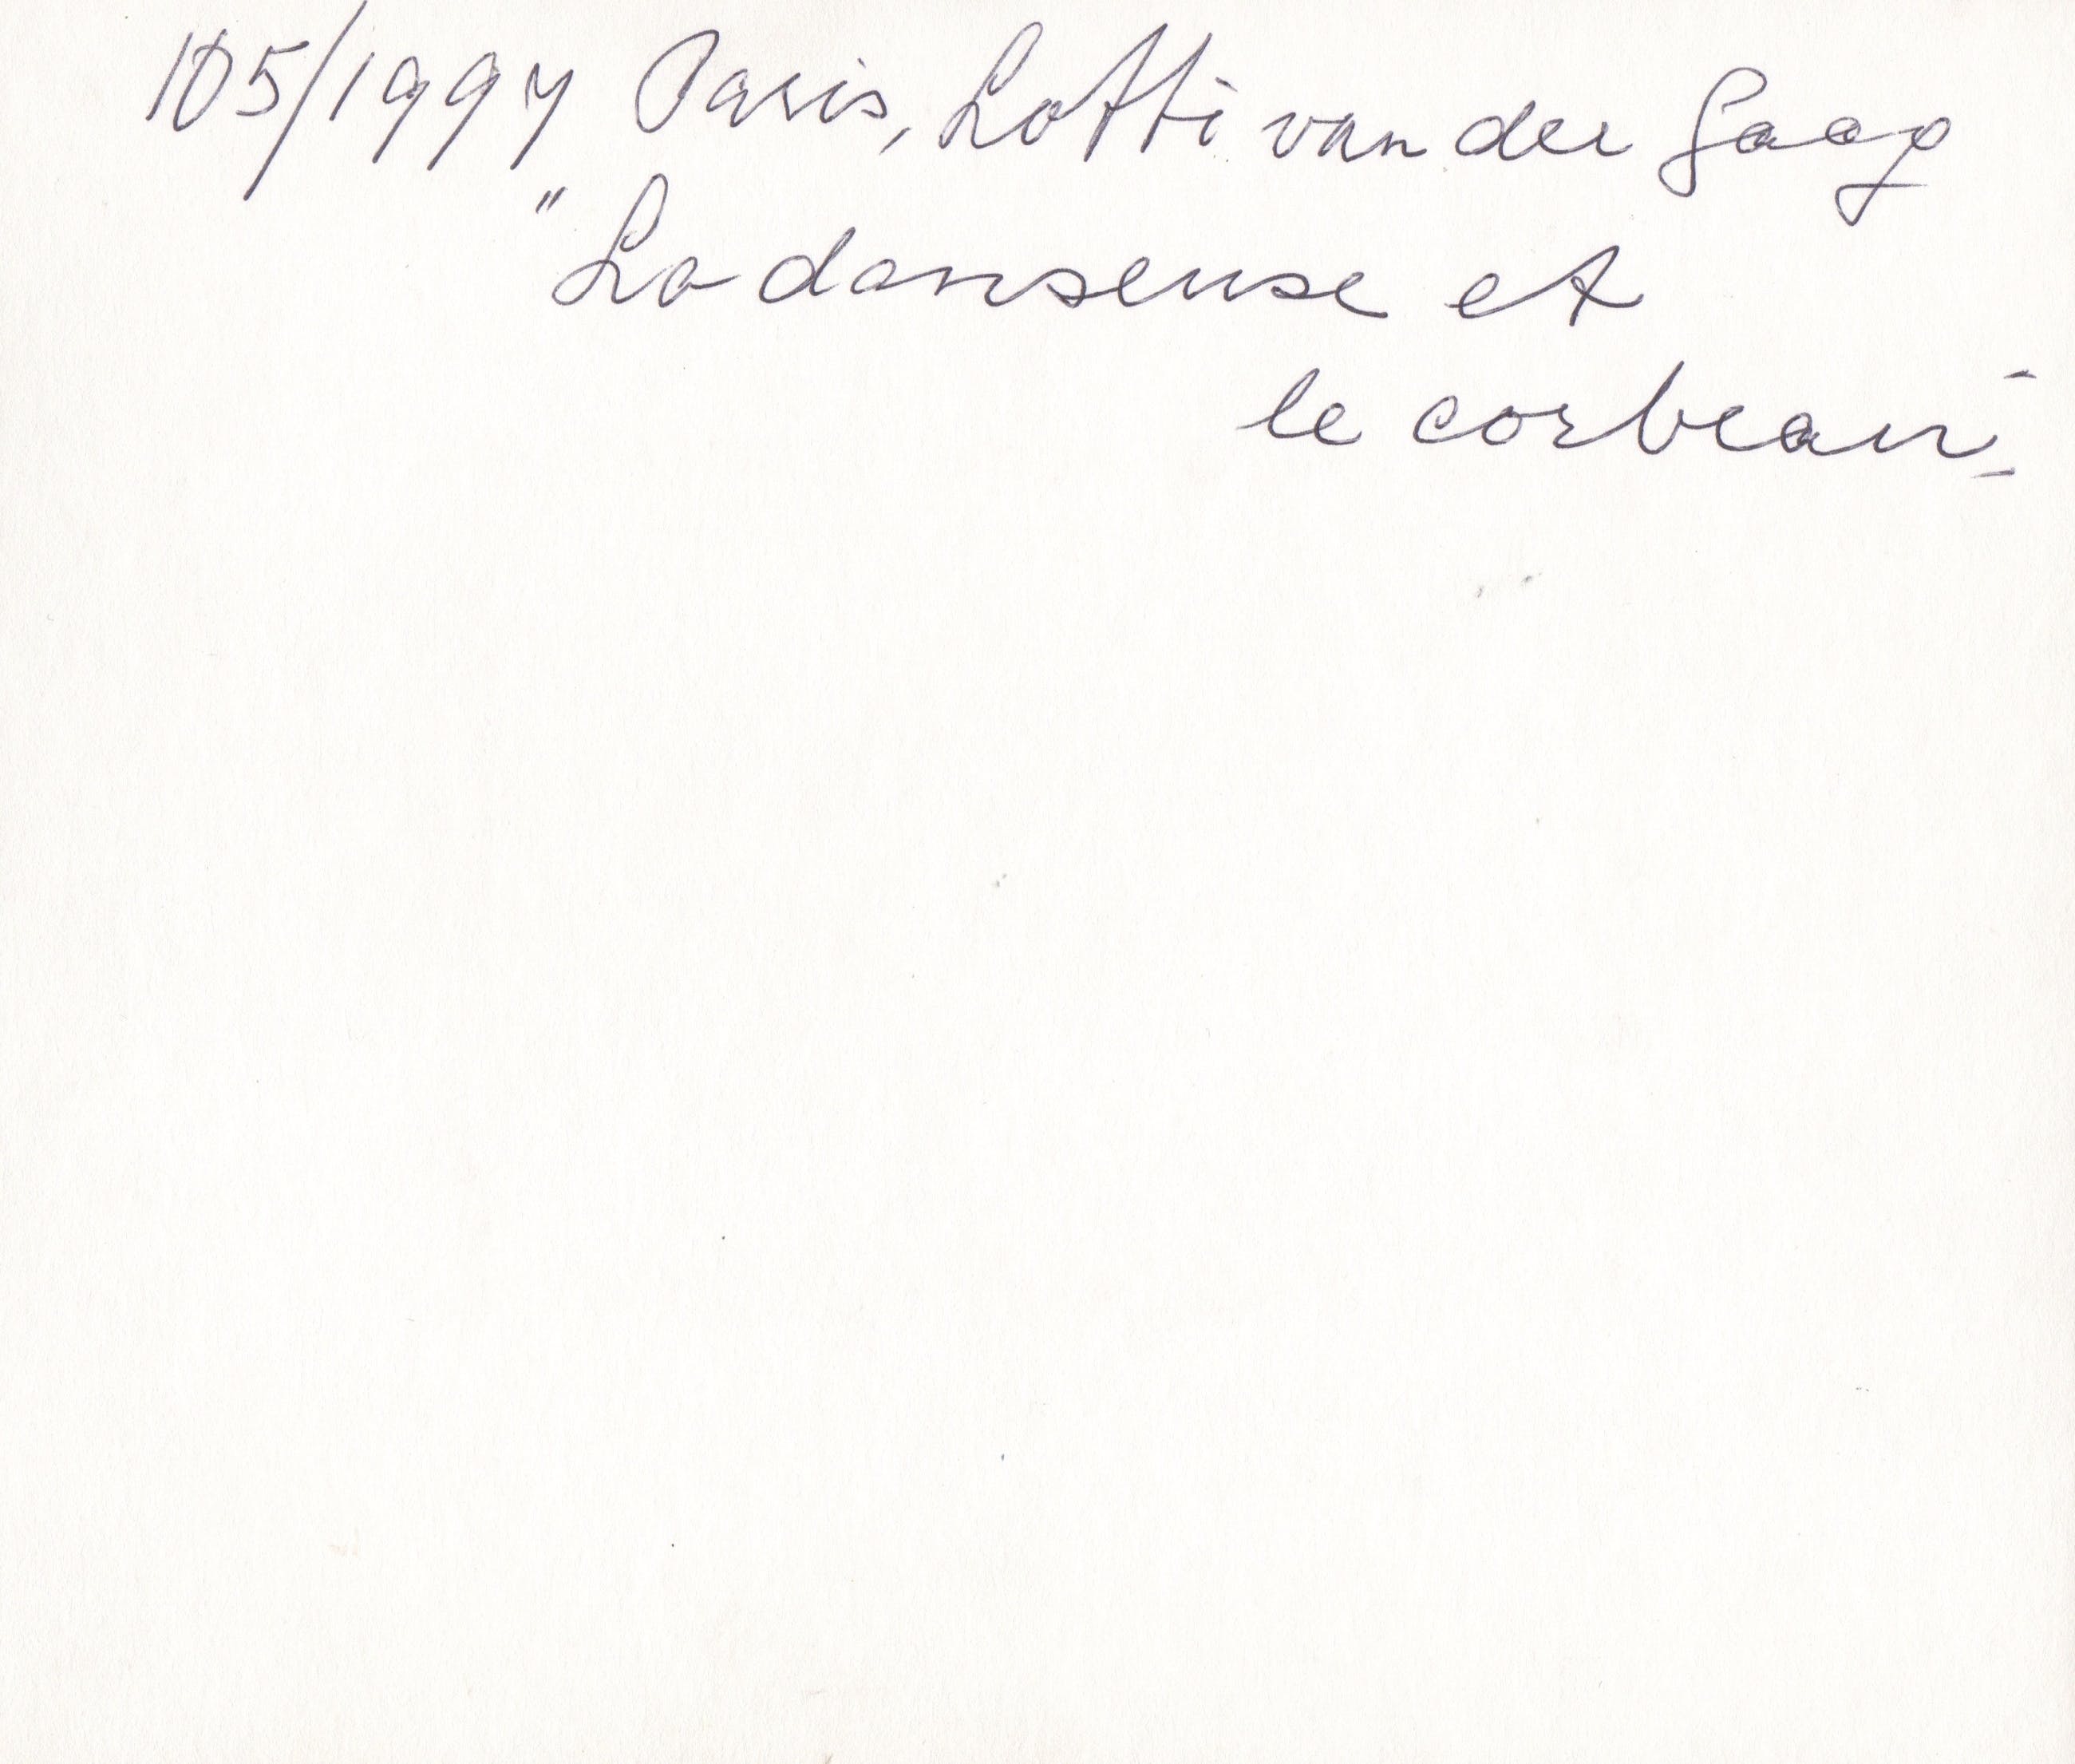 105/1994 Paris, Lotti van der Gaag
"La danseuse et
le corbeau"